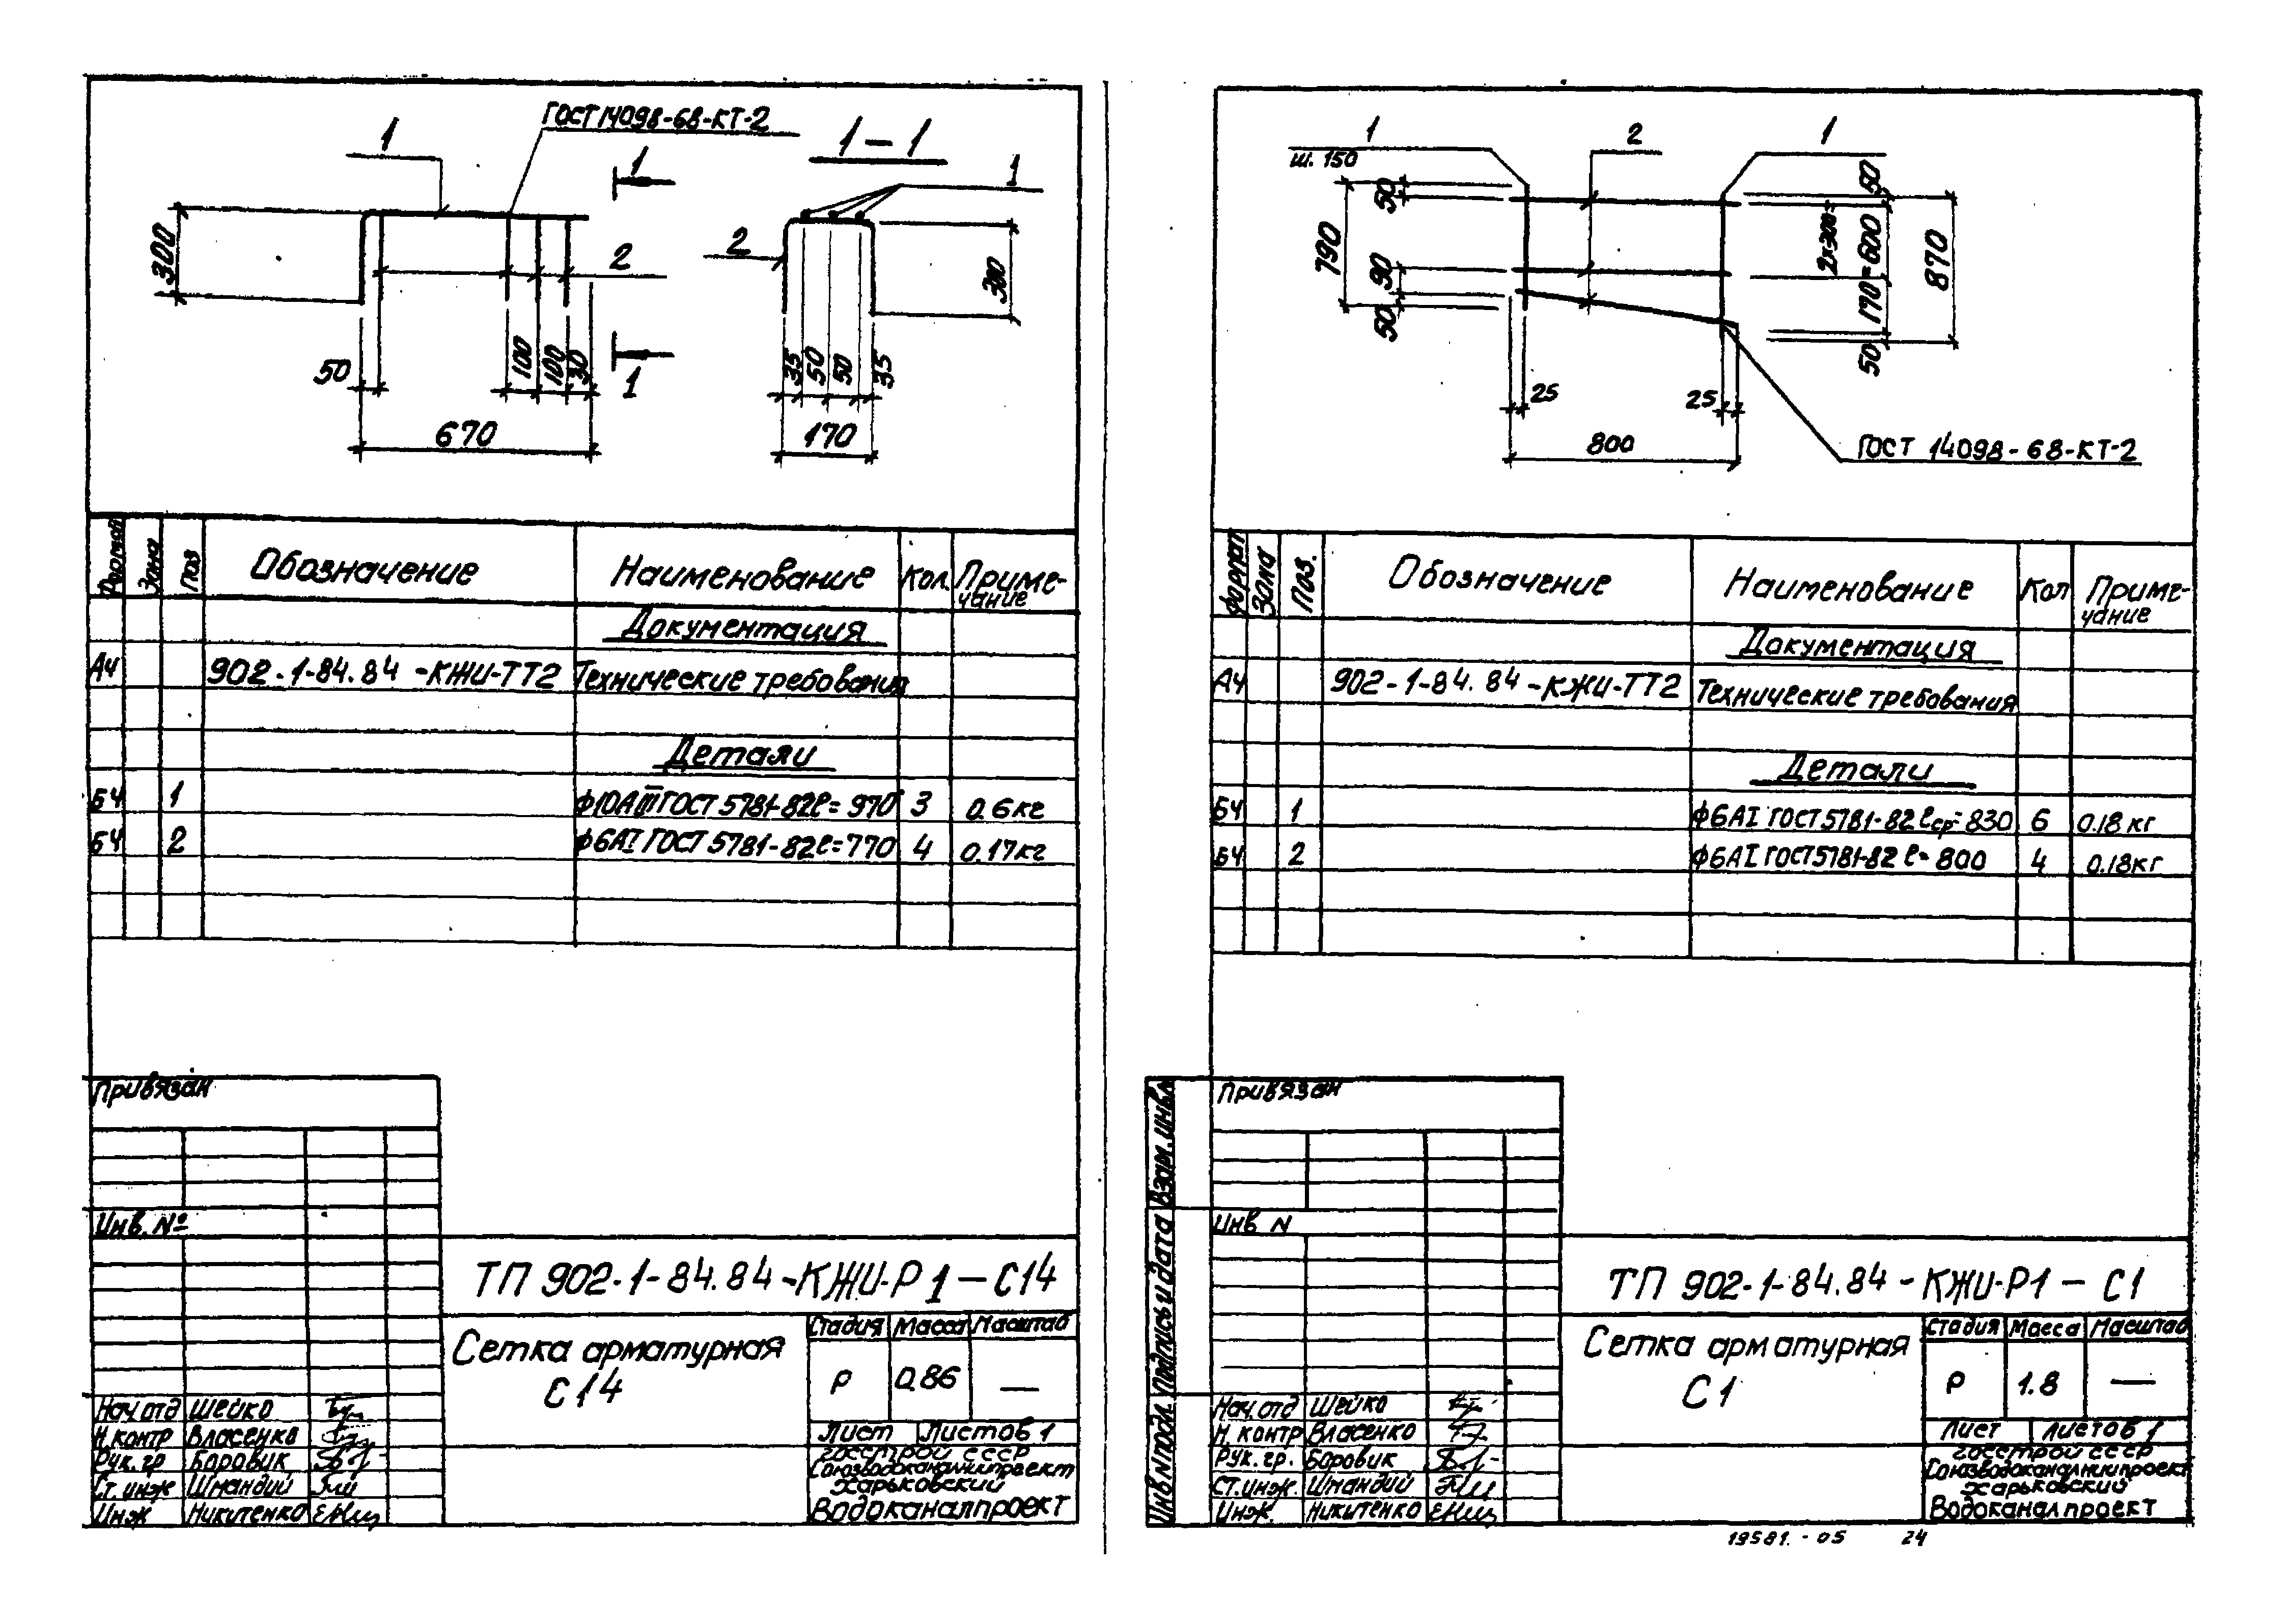 ГОСТ 14098-68-КТ-2
1
1
1-1
1
300
2
2
300
50
100
100
30
1
35
50
50
35
670
170
Формат Зона Поз Обозначение Наименование Кол. Приме-
чание
Документация
А4 902-1-84.84-КЖИ-ТТ2 Технические требования
Детали
БЧ 1 ф10АIII ГОСТ 5781-82 ℓ=970 3 0.6кг
БЧ 2 ф6АI ГОСТ 5781-82 ℓ=770 4 0.17кг
Привязан
Инв. №
ТП 902-1-84.84-КЖИ-Р1-С14
Сетка арматурная
С14
Стадия Масса Масштаб
Р 0.86 —
Лист Листов 1
Нач.отд Шейко
Н.контр Власенко
Рук.гр Боровик
Ст.инж Шмандий
Инж Никитенко
Госстрой СССР
Союзводоканалниипроект
Харьковский
Водоканалпроект
1
ш. 150
2
1
50
790
90
50
50
2×300=600
170
50
870
25
25
800
ГОСТ 14098-68-КТ-2
Формат Зона Поз. Обозначение Наименование Кол Приме-
чание
Документация
А4 902-1-84.84-КЖИ-ТТ2 Технические требования
Детали
БЧ 1 ф6АI ГОСТ 5781-82 ℓср=830 6 0.18кг
БЧ 2 ф6АI ГОСТ 5781-82 ℓ=800 4 0.18кг
Привязан
Инв N
Взам.инв.
Подпись и дата
Инв.N подл.
ТП 902-1-84.84-КЖИ-Р1-С1
Сетка арматурная
С1
Стадия Масса Масштаб
Р 1.8 —
Лист Листов 1
Нач.отд Шейко
Н.контр Власенко
Рук.гр. Боровик
Ст.инж. Шмандий
Инж. Никитенко
Госстрой СССР
Союзводоканалниипроект
Харьковский
Водоканалпроект
19581.-05 24